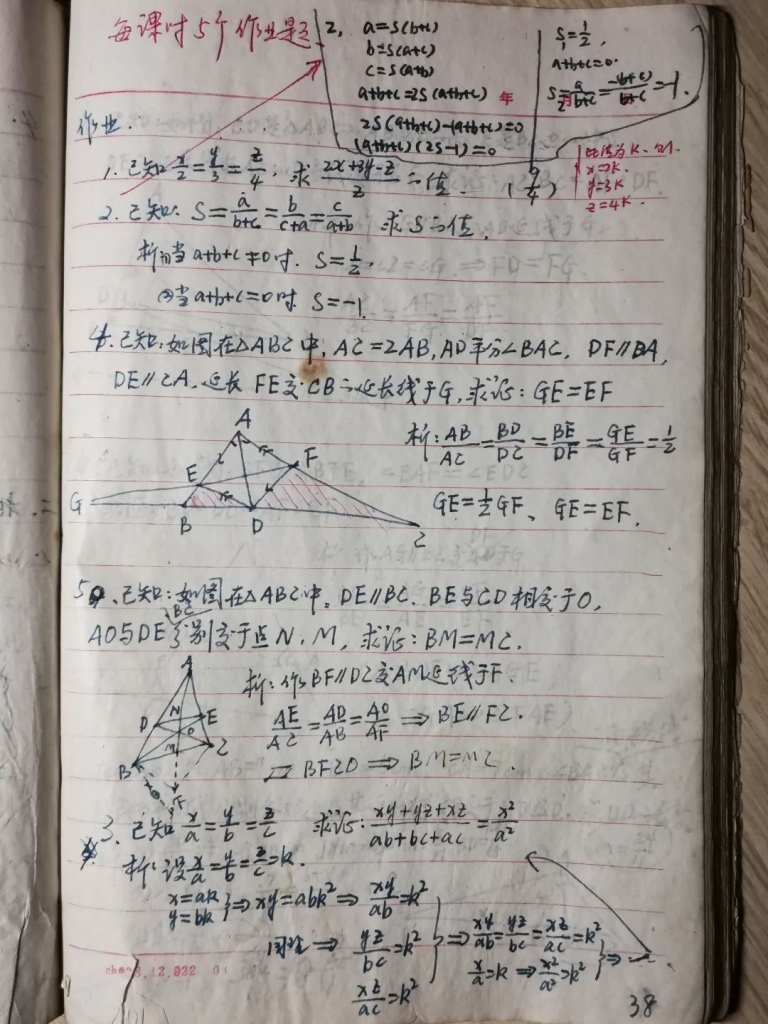 每课时5个作业题
2, a=S(b+c)
b=S(a+c)
c=S(a+b)
a+b+c=2S(a+b+c)
2S(a+b+c)-(a+b+c)=0
(a+b+c)(2S-1)=0
S₁=1/2,
a+b+c=0
S₂=a/(b+c)=-(b+c)/(b+c)=-1.
作业.
1. 已知x/2=y/3=z/4, 求(2x+3y-z)/z之值. (9/4)
比值为K.
x=2K.
y=3K
z=4K.
2. 已知: S=a/(b+c)=b/(c+a)=c/(a+b) 求S之值.
析①当a+b+c≠0时. S=1/2,
②当a+b+c=0时 S=-1.
4. 已知:如图在△ABC中, AC=2AB, AD平分∠BAC, DF∥BA,
DE∥CA. 延长FE交CB之延长线于G, 求证: GE=EF
析: AB/AC=BD/DC=BE/DF=GE/GF=1/2
GE=1/2GF、 GE=EF.
A
E
F
G
B
D
C
5. 已知:如图在△ABC中, DE∥BC. BE与CD相交于O,
BC
AO与DE分别交于点N, M, 求证: BM=MC.
析: 作BF∥DC交AM延线于F.
AE/AC=AD/AB=AO/AF ⇒ BE∥FC.
▱BFCO ⇒ BM=MC.
A
D
N
E
O
M
C
B
F
3. 已知x/a=y/b=z/c 求证: (xy+yz+xz)/(ab+bc+ac)=x²/a²
析: 设x/a=y/b=z/c=k.
x=ak
y=bk
}⇒xy=abk²⇒ xy/ab=k²
同理⇒ yz/bc=k²
xz/ac=k²
}⇒xy/ab=yz/bc=xz/ac=k²
x/a=k ⇒x²/a²=k²
}⇒
38